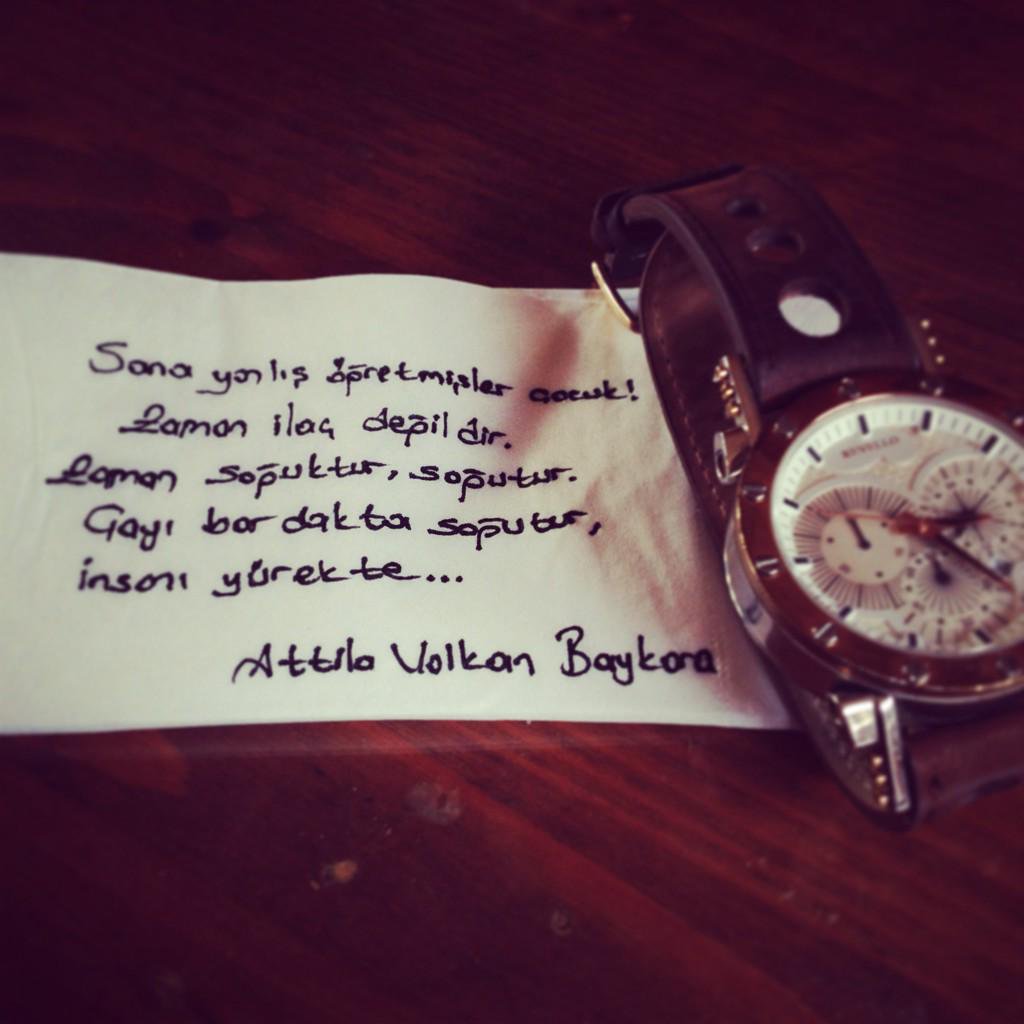 Sana yanlış öğretmişler çocuk!
Zaman ilaç değildir.
Zaman soğuktur, soğutur.
Çayı bardakta soğutur,
insanı yürekte...
Attila Volkan Baykara